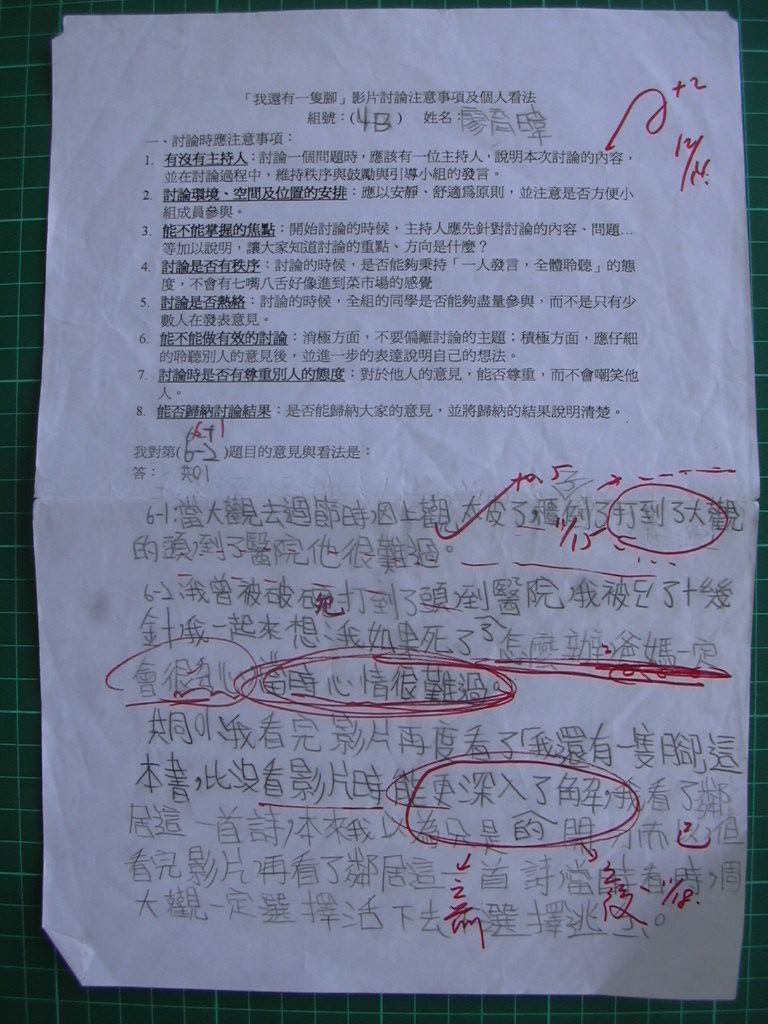 「我還有一隻腳」影片討論注意事項及個人看法
組號：(4B) 姓名：廖育暐
+2
12/14
一、討論時應注意事項：
1. 有沒有主持人：討論一個問題時，應該有一位主持人，說明本次討論的內容，
並在討論過程中，維持秩序與鼓勵與引導小組的發言。
2. 討論環境、空間及位置的安排：應以安靜、舒適為原則，並注意是否方便小
組成員參與。
3. 能不能掌握的焦點：開始討論的時候，主持人應先針對討論的內容、問題…
等加以說明，讓大家知道討論的重點、方向是什麼？
4. 討論是否有秩序：討論的時候，是否能夠秉持「一人發言，全體聆聽」的態
度，不會有七嘴八舌好像進到菜市場的感覺
5. 討論是否熱絡：討論的時候，全組的同學是否能夠盡量參與，而不是只有少
數人在發表意見。
6. 能不能做有效的討論：消極方面，不要偏離討論的主題；積極方面，應仔細
的聆聽別人的意見後，並進一步的表達說明自己的想法。
7. 討論時是否有尊重別人的態度：對於他人的意見，能否尊重，而不會嘲笑他
人。
8. 能否歸納討論結果：是否能歸納大家的意見，並將歸納的結果說明清楚。
6-1
我對第(6-2)題目的意見與看法是：
答： 共01
+0.5
6-1:當大觀去過節時,大皮了,櫃倒了打到了大觀
11/13
的頭,到了醫院他很難過。
6-2:我曾被破碗打到了頭,到醫院,我被了十幾
針,我一起來想:我如果死了了怎麼辦,爸媽一定
會很當時心情很難過。
共同01,我看完影片再度看了「我還有一隻腳這
本書,比沒看影片時能更深入了解,我看了鄰
居這一首詩,本來我以為是的而已,但
看完影片,再看了鄰居這一首詩,當時,周
之前 之後 11/18.
大觀一定選擇活下去選擇逃。